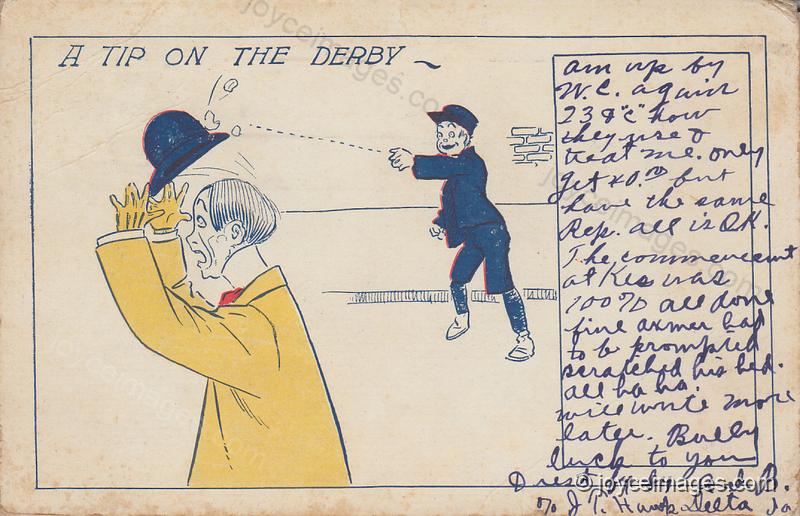 A TIP ON THE DERBY ~
am up by
W. C. again
23 & "C" how
they use to
treat me. only
get 40.00 but
have the same
Rep. all is OK.
The commencemt
at Kes was
100% all done
fine axmer had
to be prompted
scratched his hed.
all ha ha.
will write more
later. Bully
luck to you
D
% J. T. Hawk Delta Ia
© joyceimages.com